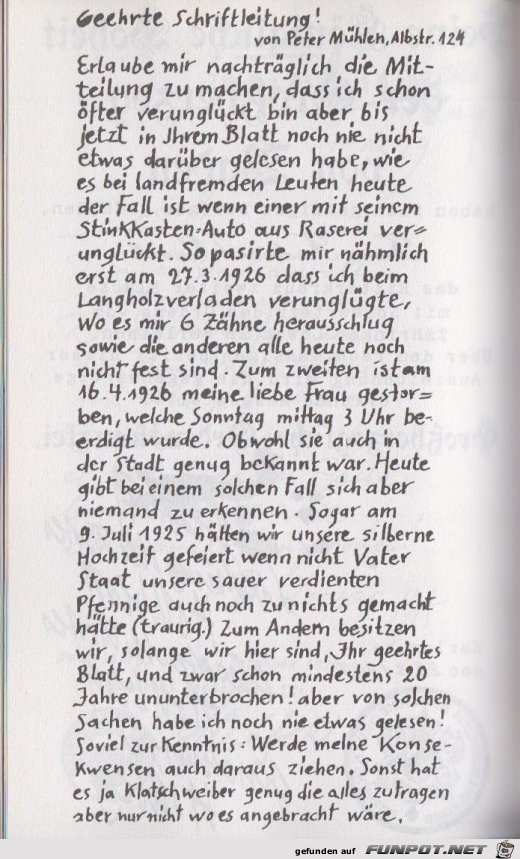 Geehrte Schriftleitung!
von Peter Mühlen, Albstr. 124
Erlaube mir nachträglich die Mit-
teilung zu machen, dass ich schon
öfter verunglückt bin aber bis
jetzt in Ihrem Blatt noch nie nicht
etwas darüber gelesen habe, wie
es bei landfremden Leuten heute
der Fall ist wenn einer mit seinem
Stinkkasten=Auto aus Raserei ver=
unglückt. So pasirte mir nähmlich
erst am 27.3.1926 dass ich beim
Langholzverladen verunglügte,
Wo es mir 6 Zähne herausschlug
sowie die anderen alle heute noch
nicht fest sind. Zum zweiten ist am
16.4.1926 meine liebe Frau gestor=
ben, welche Sonntag mittag 3 Uhr be-
erdigt wurde. Obwohl sie auch in
der Stadt genug bekannt war. Heute
gibt bei einem solchen Fall sich aber
niemand zu erkennen. Sogar am
9. Juli 1925 hätten wir unsere silberne
Hochzeit gefeiert wenn nicht Vater
Staat unsere sauer verdienten
Pfennige auch noch zu nichts gemacht
hätte (traurig.) Zum Andern besitzen
wir, solange wir hier sind, Ihr geehrtes
Blatt, und zwar schon mindestens 20
Jahre ununterbrochen! aber von solchen
Sachen habe ich noch nie etwas gelesen!
Soviel zur Kenntnis: Werde meine Konse-
kwensen auch daraus ziehen. Sonst hat
es ja Klatschweiber genug die alles zutragen
aber nur nicht wo es angebracht wäre.
gefunden auf FUNPOT.NET